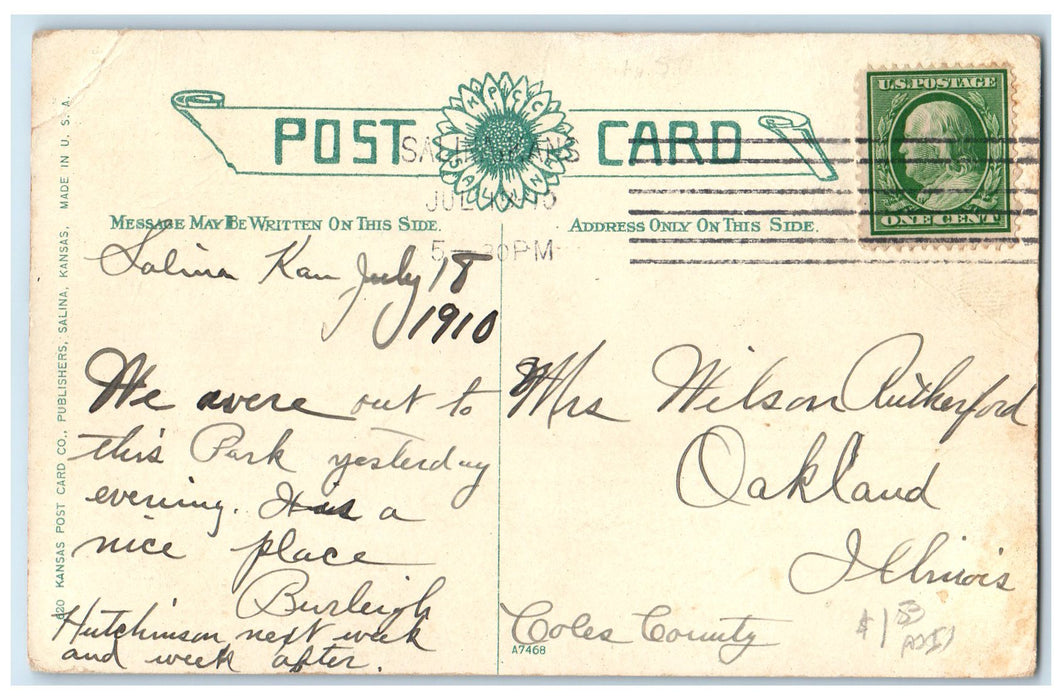 POST CARD
KPCCO SALINA
SALINA KANS
JUL
5 — 30 PM
U.S. POSTAGE
ONE CENT
MESSAGE MAY BE WRITTEN ON THIS SIDE.
ADDRESS ONLY ON THIS SIDE.
Salina Kan July 18
1910
We were out to
this Park yesterday
evening. It is a
nice place
Burleigh
Hutchinson next week
and week after.
Mrs Wilson Rutherford
Oakland
Illinois
Coles County
A7468
$1
620 KANSAS POST CARD CO., PUBLISHERS, SALINA, KANSAS. MADE IN U. S. A.